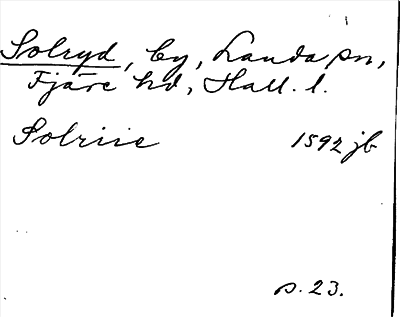 Solryd, by, Landa sn,
Fjäre hd, Hall. l.
Solriie 1592 jb
s. 23.